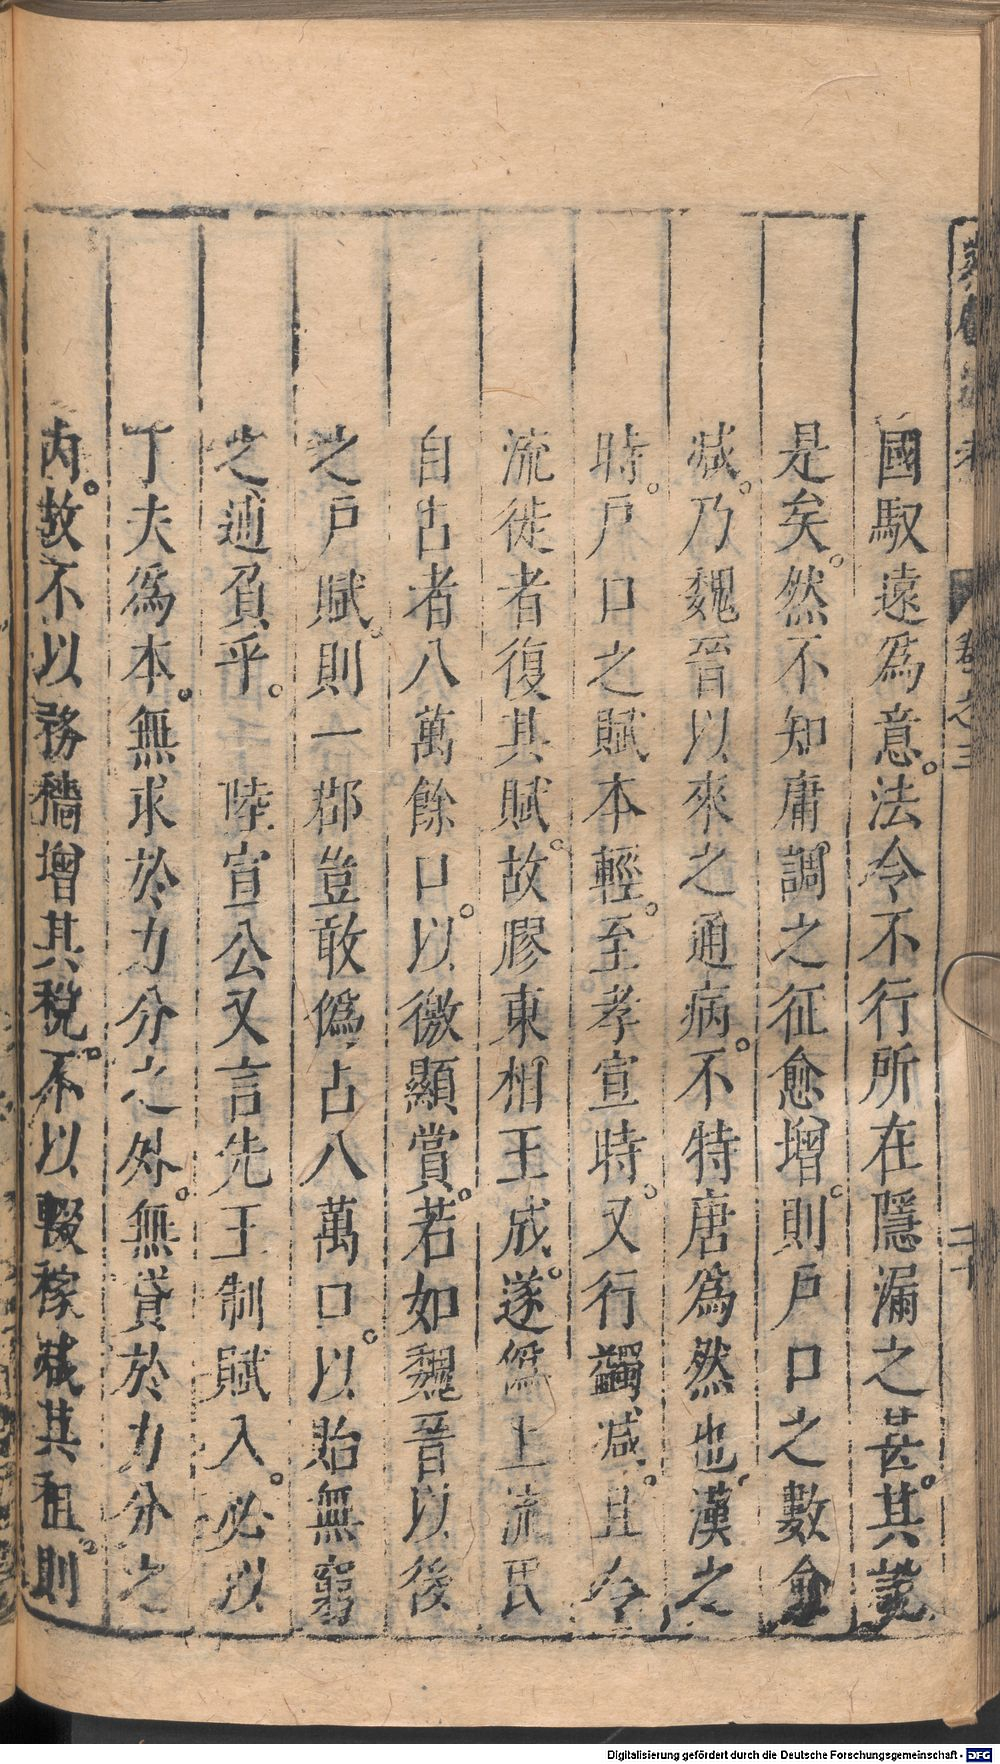 國馭遠爲意。法令不行所在隱漏之甚。其說
是矣。然不知庸調之征愈增。則戸口之數愈
減。乃魏晉以來之通病。不特唐爲然也。漢之
時。戸口之賦本輕。至孝宣時。又行蠲減。且令
流徙者復其賦。故膠東相王成。遂僞上流民
自占者八萬餘口。以徼顯賞。若如魏晉以後
之戸賦。則一郡豈敢僞占八萬口。以貽無窮
之逋負乎。 陸宣公又言先王制賦入。必以
丁夫爲本。無求於力分之外。無貸於力分之
内。故不以務穡增其稅。不以輟稼減其租。則
卷之三
二十
Digitalisierung gefördert durch die Deutsche Forschungsgemeinschaft - DFG